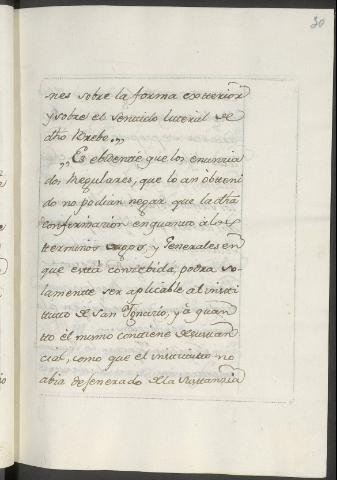 30
nes sobre la forma extterior
y sobre el sentido literal de
dho Brebe.„
„Es ebidente que los enunzia
dos Regulares, que lo an obteni
do no podian negar que la dha
confirmazion en quanto à los
tterminos vagos, y Generales en
que està conzebida, podra so-
lamentte ser aplicable al insti
tutto de San Ygnazio, y à quan
tto èl mismo contiene de sustan
cial, como que el institutto no
abia dejenerado de la sustanzia